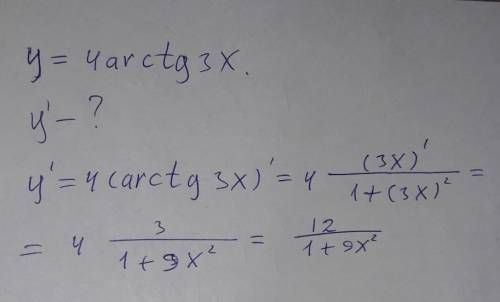 y = 4arctg3x.
y' - ?
y' = 4(arctg 3x)' = 4 (3x)' / 1+(3x)² =
= 4 3 / 1+9x² = 12 / 1+9x²